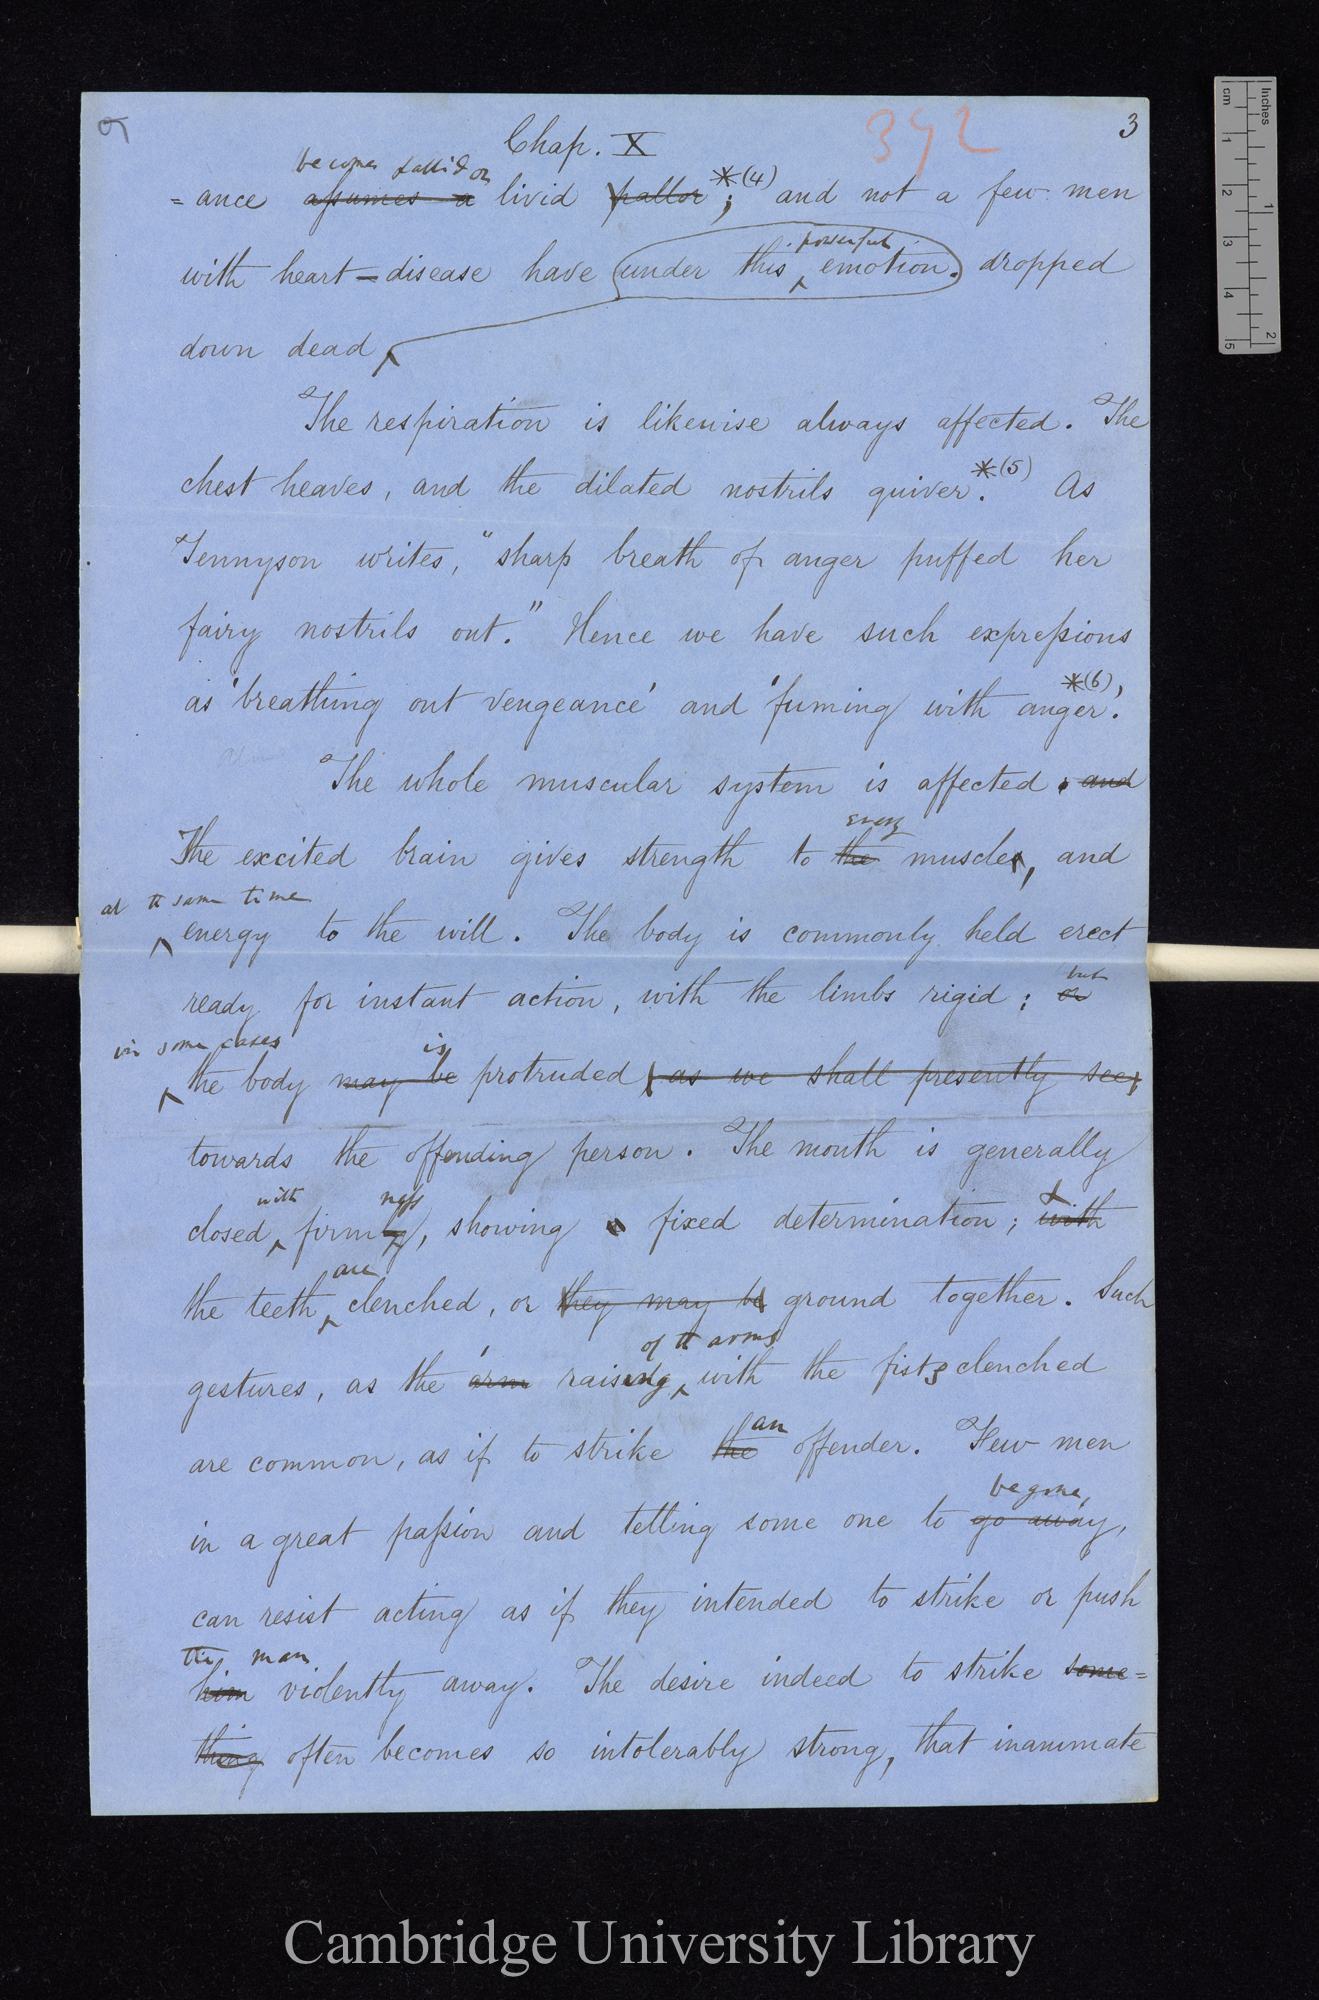 Chap. X
392
3
becomes pallid or
=ance assumes a livid pallor *(4); and not a few men
powerful
with heart-disease have under this emotion. dropped
down dead
The respiration is likewise always affected. The
chest heaves, and the dilated nostrils quiver.*(5) As
Tennyson writes, "sharp breath of anger puffed her
fairy nostrils out." Hence we have such expressions
as 'breathing out vengeance' and 'fuming with anger.*(6)'
The whole muscular system is affected. and
every
The excited brain gives strength to the muscles, and
at the same time
energy to the will. The body is commonly held erect
but
ready for instant action, with the limbs rigid; or
in some cases is
the body may be protruded (as we shall presently see)
towards the offending person. The mouth is generally
with ness &
closed, firmly, showing a fixed determination; with
are
the teeth, clenched, or they may be ground together. Such
of the arms
gestures, as the arm raising, with the fists clenched
an
are common, as if to strike the offender. Few men
begone,
in a great passion and telling some one to go away,
can resist acting as if they intended to strike or push
the man
him violently away. The desire indeed to strike some=
thing often becomes so intolerably strong, that inanimate
Inches
cm
1
2
3
4
5
1
2
Cambridge University Library